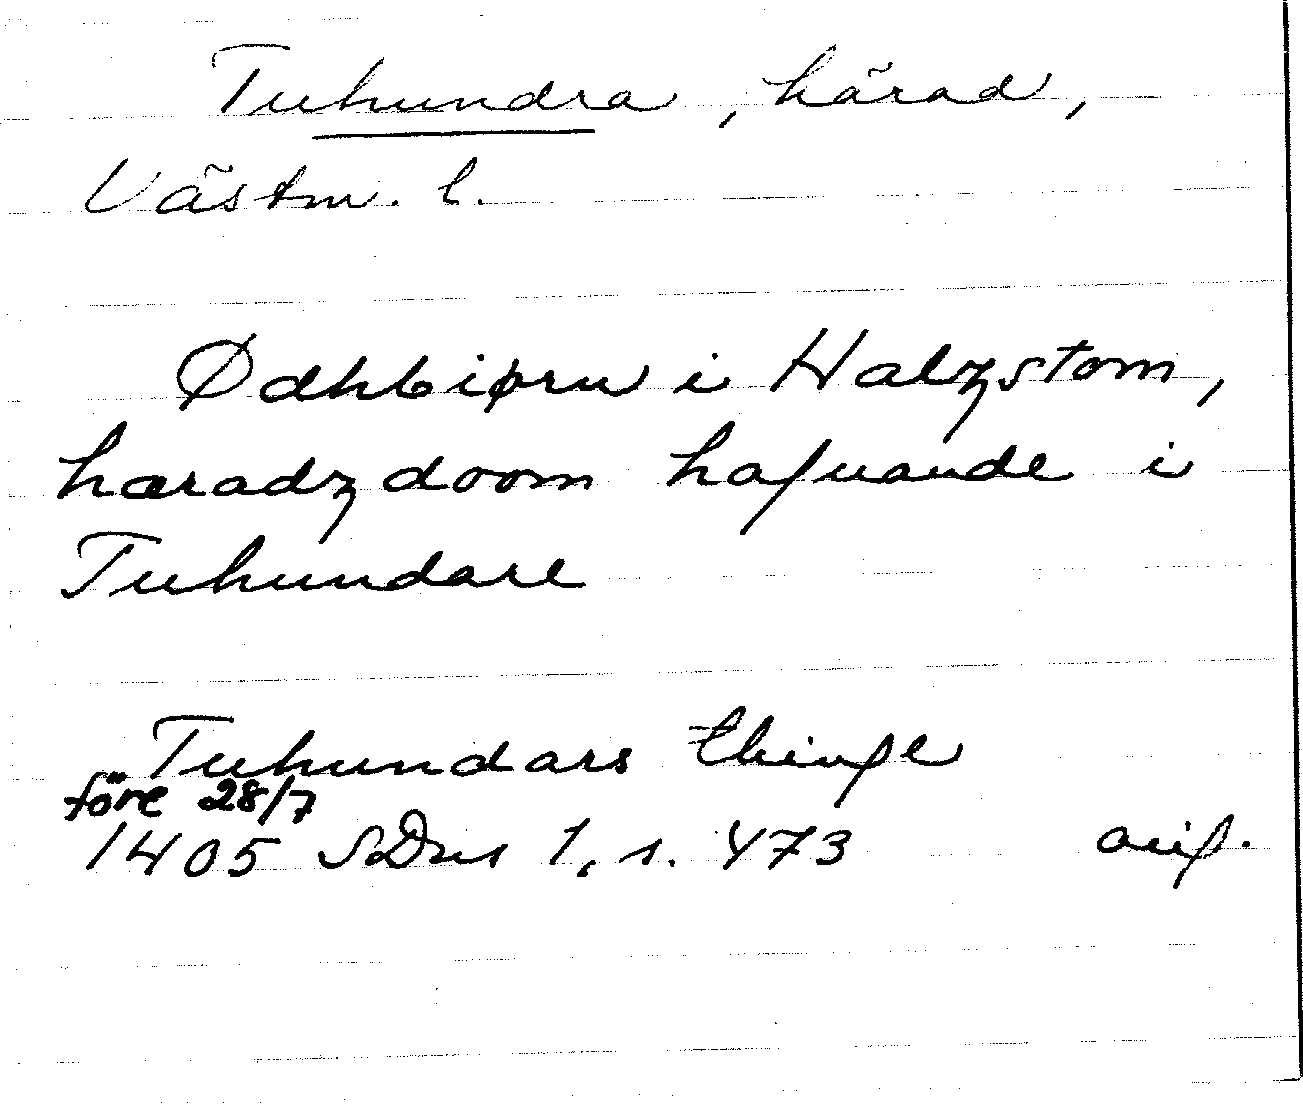 Tuhundra, härad,
Västm. l.
Ødhbiørn i Halzstom,
hæradzdoom hafuande i
Tuhundare
Tuhundars thinge
före 28/7
1405 SDns 1, s. 473 orig.